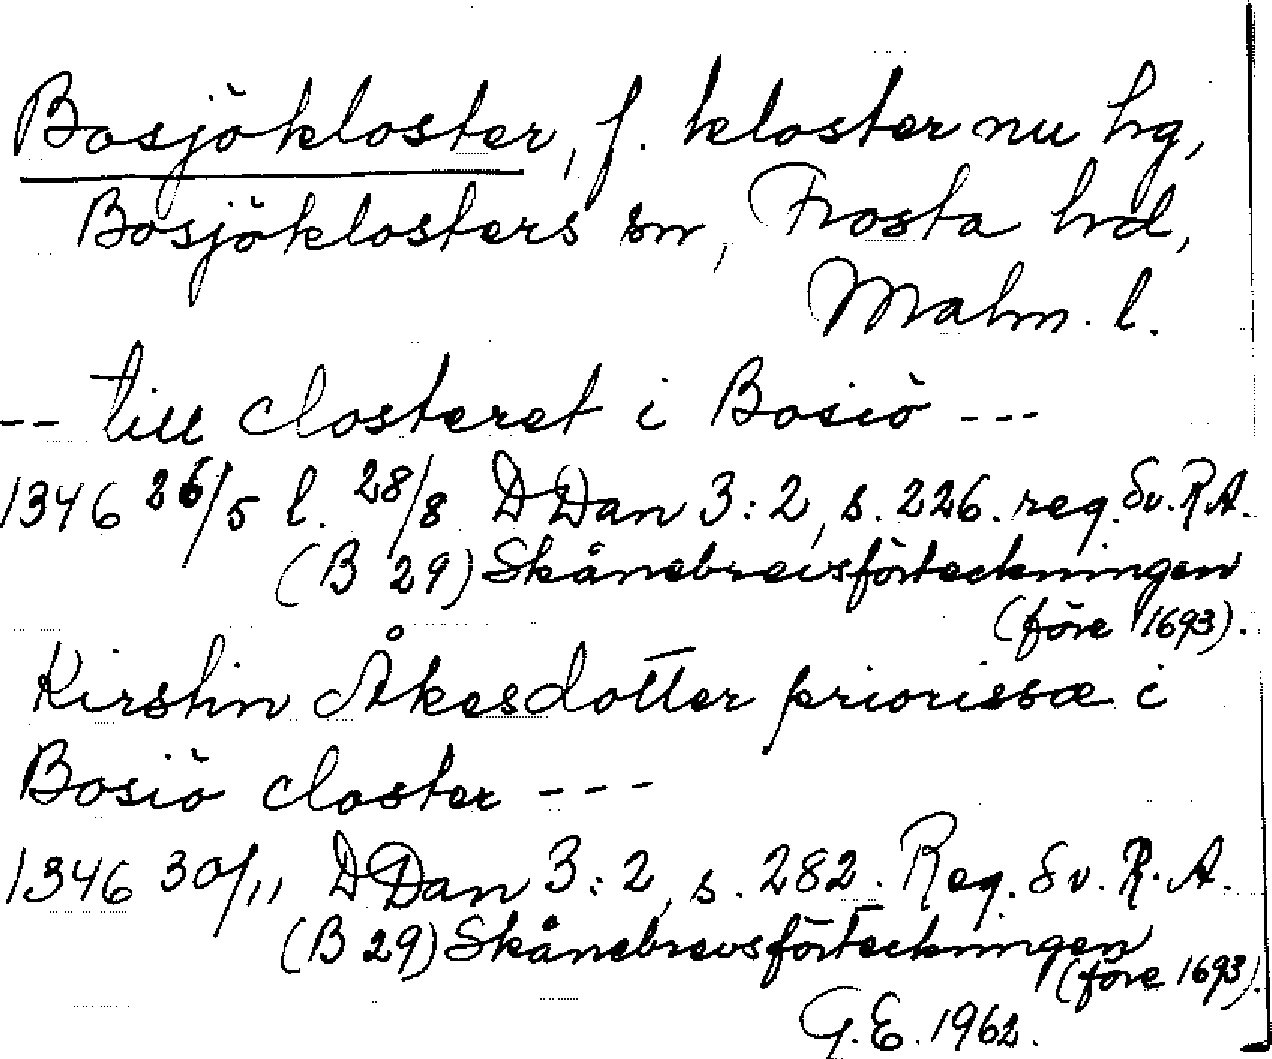 Bosjökloster, f. kloster nu hg,
Bosjöklosters sn, Frosta hd,
Malm. l.
-- till closteret i Bosiö ---
1346 26/5 l. 28/8 DDan 3:2, s. 226. reg. Sv. R A.
(B 29) Skånebrevsförteckningen
(före 1693).
Kirstin Åkesdotter priorissæ i
Bosiö closter ---
1346 30/11 DDan 3:2, s. 282. Reg. Sv. R. A.
(B 29) Skånebrevsförteckningen
(före 1693).
G.E. 1962.